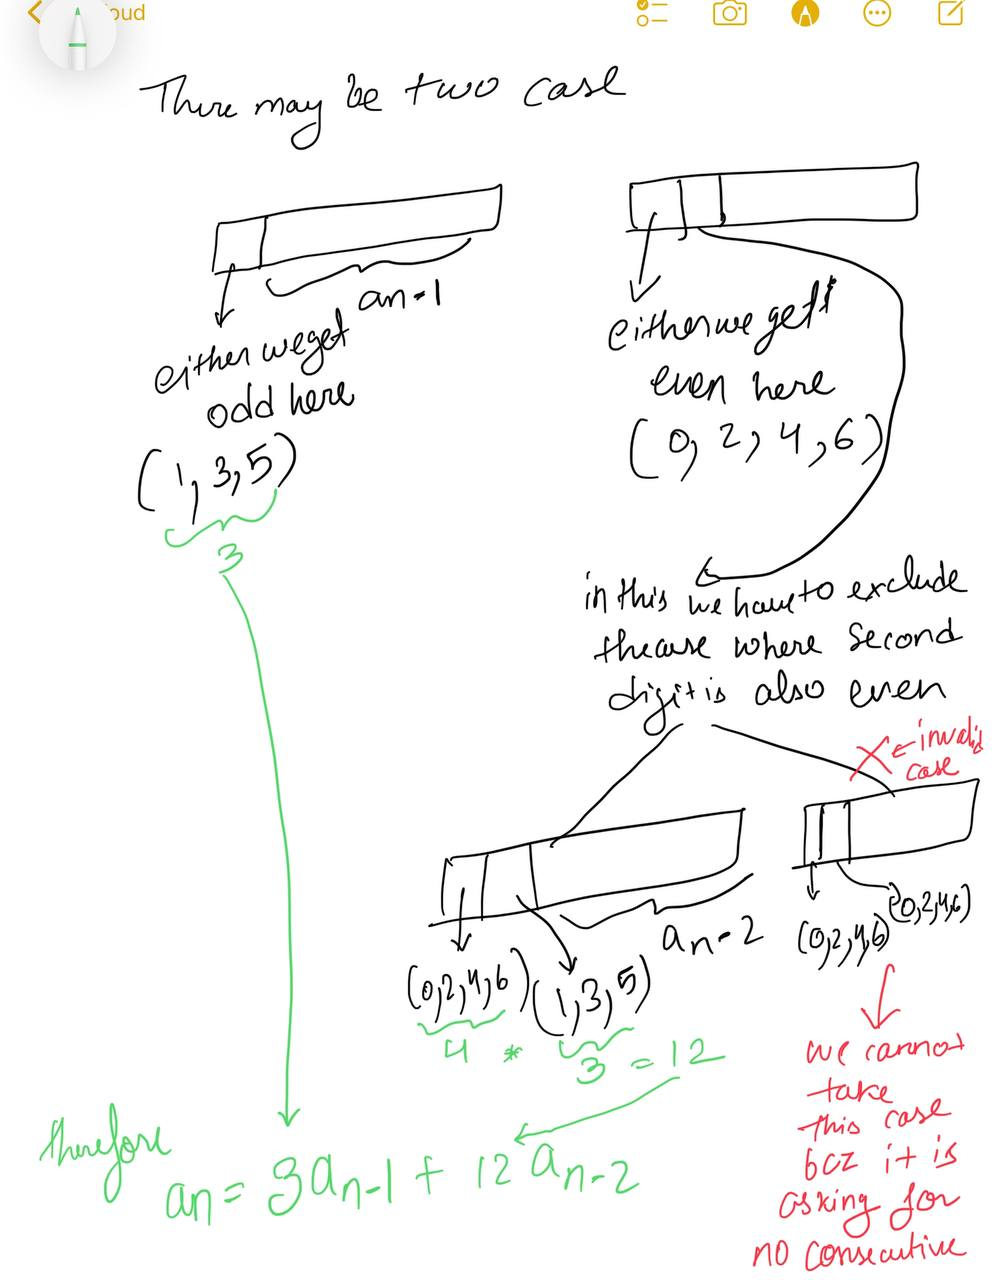 oud
There may be two case
an-1
either we get
odd here
(1, 3, 5)
3
either we get
even here
(0, 2, 4, 6)
in this we have to exclude
the case where second
digit is also even
X ← invalid
case
an-2
(0,2,4,6) (1,3,5)
4 * 3 = 12
(0,2,4,6) (0,2,4,6)
we cannot
take
this case
bcz it is
asking for
no consecutive
therefore
an = 3an-1 + 12 an-2